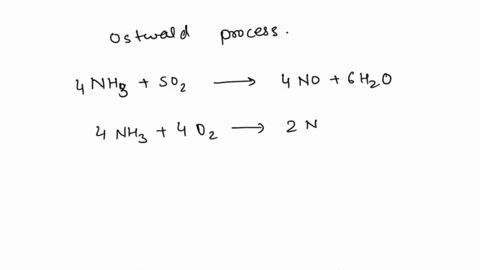 Ostwald process.
4 NH3 + 5O2 → 4 NO + 6H2O
4 NH3 + 4 O2 → 2 N